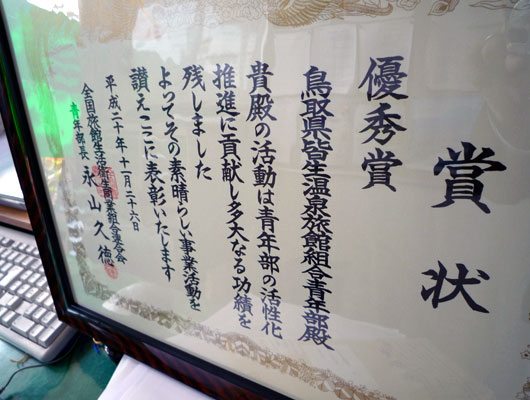 賞状
優秀賞
鳥取県皆生温泉旅館組合青年部殿
貴殿の活動は青年部の活性化
推進に貢献し多大なる功績を
残しました
よってその素晴らしい事業活動を
讃えここに表彰いたします
平成二十年十一月二十六日
全国旅館生活衛生同業組合連合会
青年部長 永山久徳